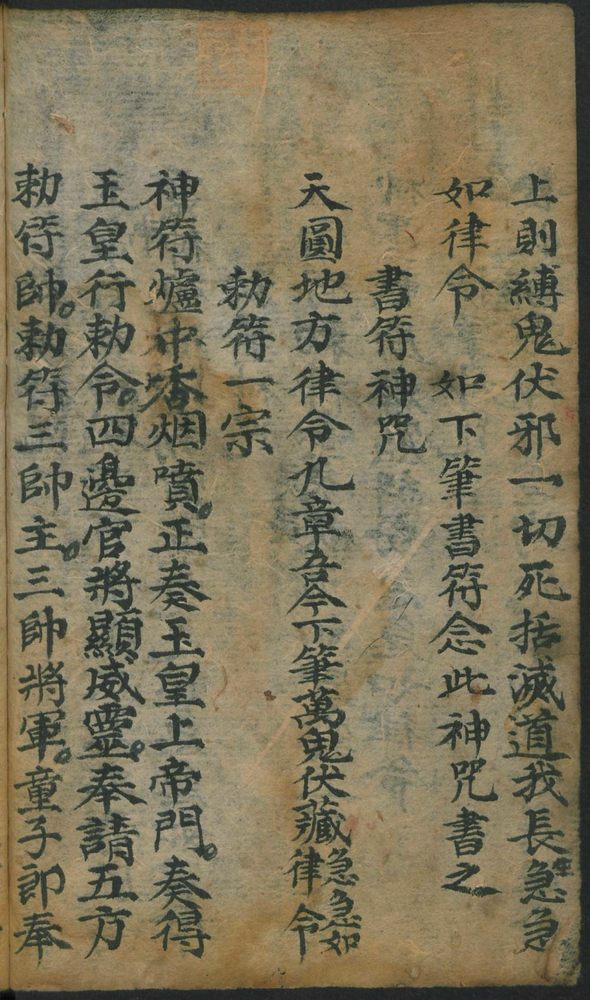 上則縛鬼伏邪一切死括滅道我長急急
如律令　如下筆書符念此神咒書之
書符神咒
天圓地方律令九章吾今下筆萬鬼伏藏急急如律令
勅符一宗
神符爐中香烟噴。正奏玉皇上帝門。奏得
玉皇行勅令。四邊官將顯威靈。奉請五方
勅符帥。勅符三帥主。三帥將軍。童子郎奉